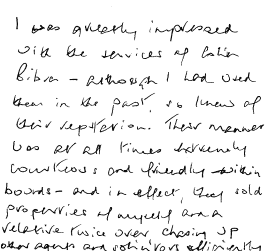 I was greatly impressed
with the services of
Bibra - although I had used
them in the past, so knew of
their reputation. Their manner
was at all times extremely
courteous and friendly - within
bounds - and in effect, they sold
properties of myself and a
relative twice over chasing up
other agents and solicitors efficiently